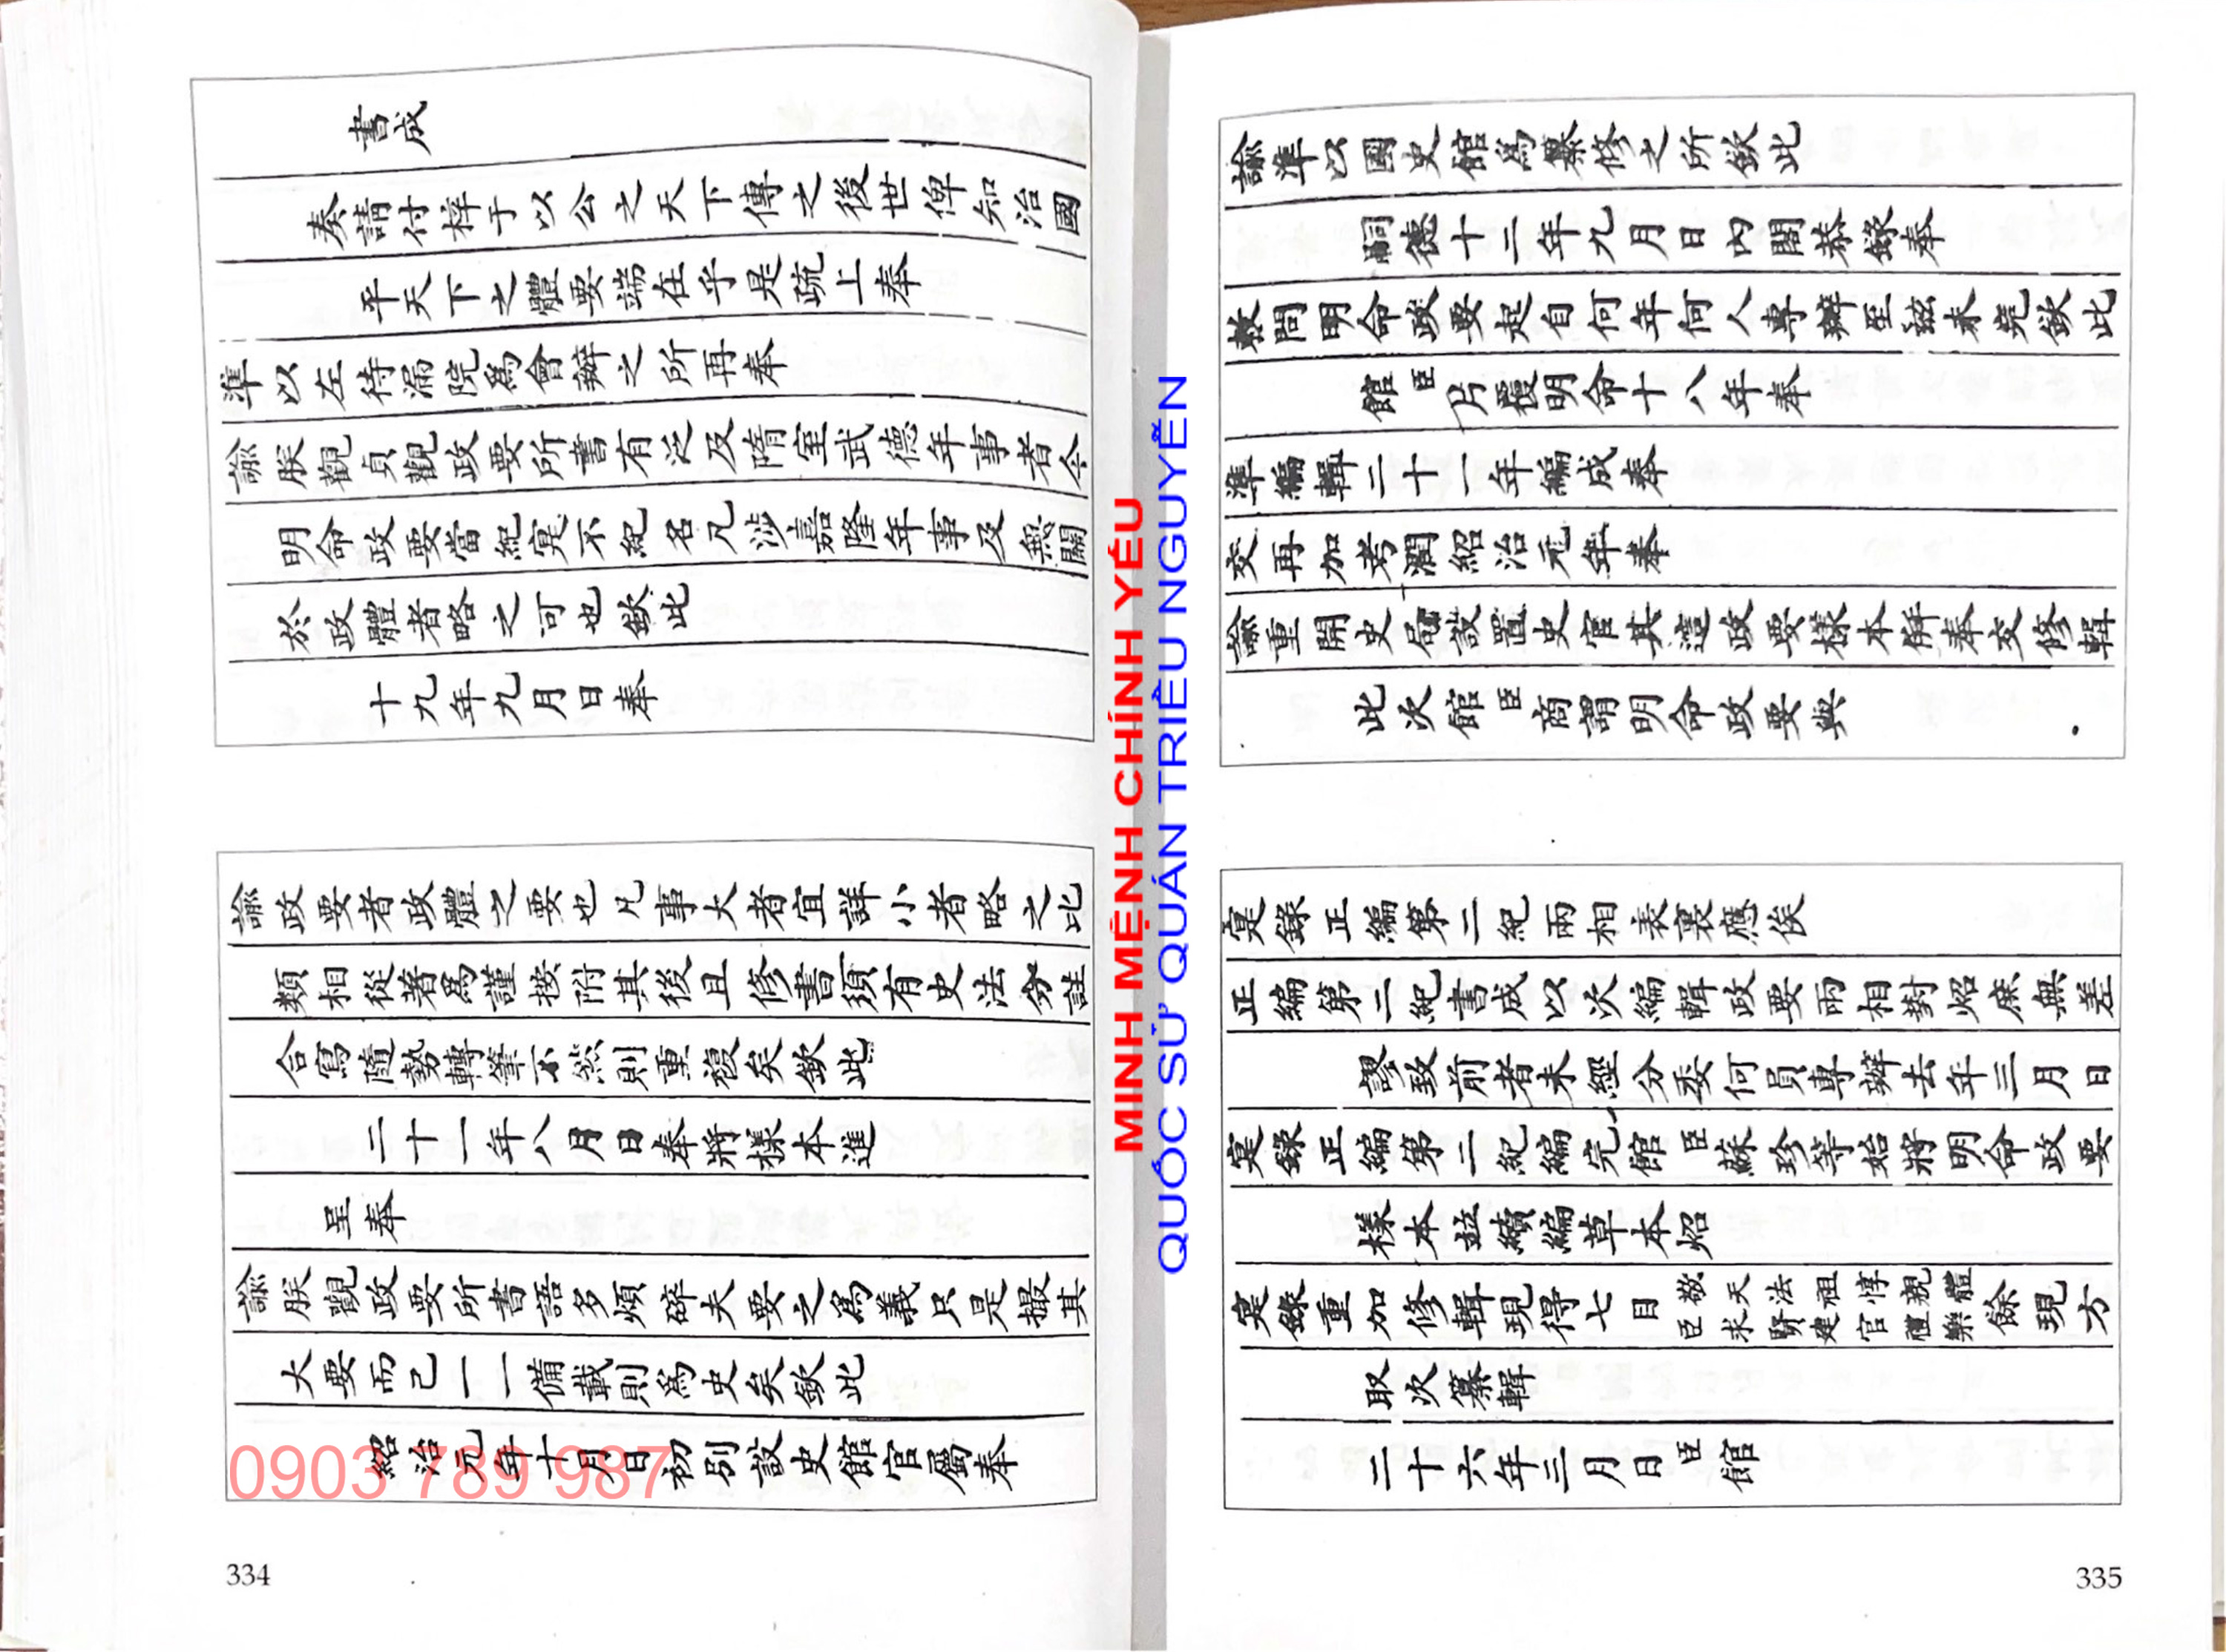 書成
奏請付梓于以公之天下傳之後世俾知治國
平天下之體要端在乎是疏上奉
準以左待漏院爲會辦之所再奉
諭朕觀貞觀政要所書有泛及隋室武德年事者今
明命政要當紀寔不紀名凡涉嘉隆年事及無關
於政體者略之可也欽此
十九年九月日奉
諭政要者政體之要也凡事大者宜詳小者略之比
類相從著爲謹按附其後且修書須有史法分註
合寫隨勢轉筆不然則重複矣欽此
二十一年八月日奉將樣本進
呈奉
諭朕觀政要所書語多煩碎夫要之爲義只是撮其
大要而已一一備載則爲史矣欽此
紹治元年十月日初別設史館官屬奉
0903 789 987
334
MINH MỆNH CHÍNH YẾU
QUỐC SỬ QUÁN TRIỀU NGUYỄN
諭準以國史館爲纂修之所欽此
嗣德十二年九月日內閣恭錄奉
敕問明命政要起自何年何人專辦至玆未完欽此
館臣片覆明命十八年奉
準編輯二十一年編成奉
交再加考潤紹治元年奉
諭重開史局設置史官其這政要樣本併奉交修輯
此次館臣商謂明命政要與
寔錄正編第二紀兩相表裏應俟
正編第二紀書成以次編輯政要兩相對炤庶無差
謬致前者未經分委何員專辦去年三月日
寔錄正編第二紀編完館臣蘇珍等始將明命政要
樣本並續編草本炤
寔錄重加修輯現得七目臣敬天求賢法祖建官惇親禮臣體樂餘現方
取次纂輯
二十六年三月日臣館
335